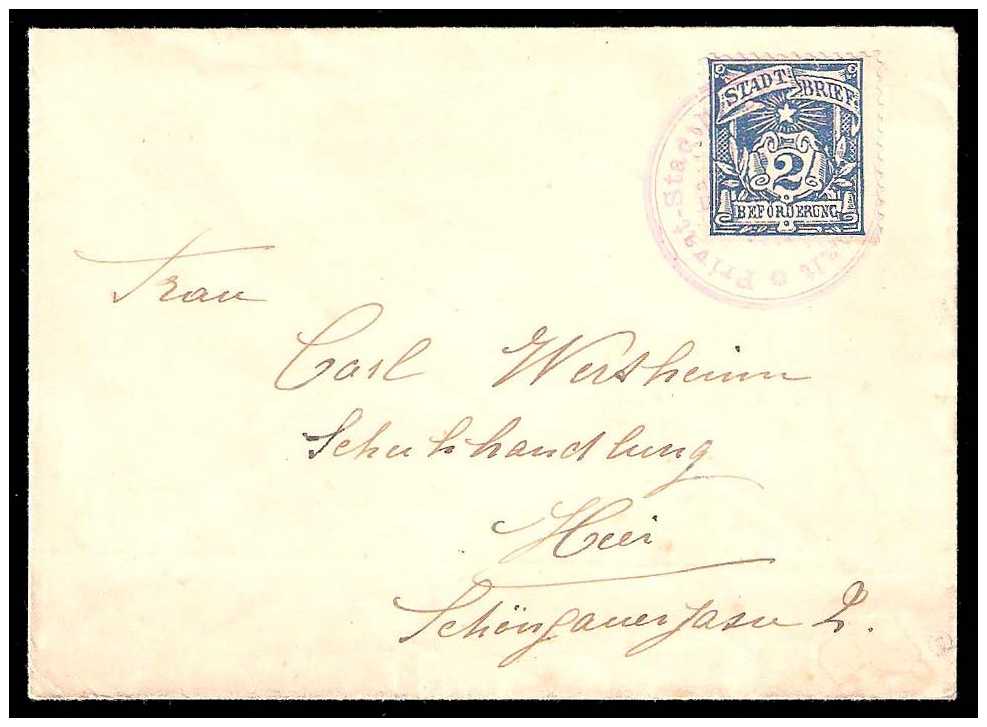 STADT BRIEF
2
BEFÖRDERUNG
Privat-Stad
Frau
Carl Wertheim
Schuhhandlung
Hier
Schöngauergasse 2.